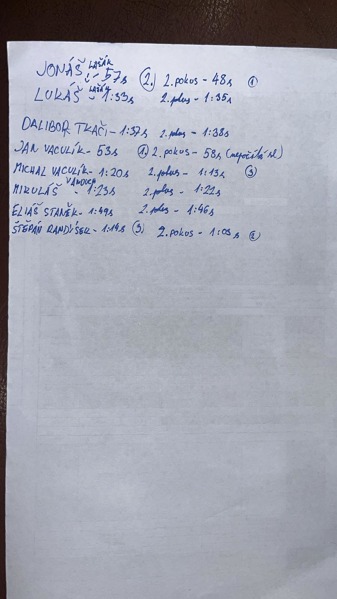 JONÁŠ LAŠÁK - 57s (2.) 2. pokus - 48s (1)
LUKÁŠ LAŠÁK - 1:33s 2. pokus - 1:35s
DALIBOR TKAČI - 1:37s 2. pokus - 1:38s
JAN VACULÍK - 53s (1) 2. pokus - 58s (nepočítá se)
MICHAL VACULÍK - 1:20s 2. pokus - 1:13s (3)
MIKULÁŠ - 1:23s 2. pokus - 1:22s
ELIÁŠ STANĚK - 1:49s 2. pokus - 1:46s
ŠTĚPÁN RANDÝSEK - 1:14s (3) 2. pokus - 1:03s (2)